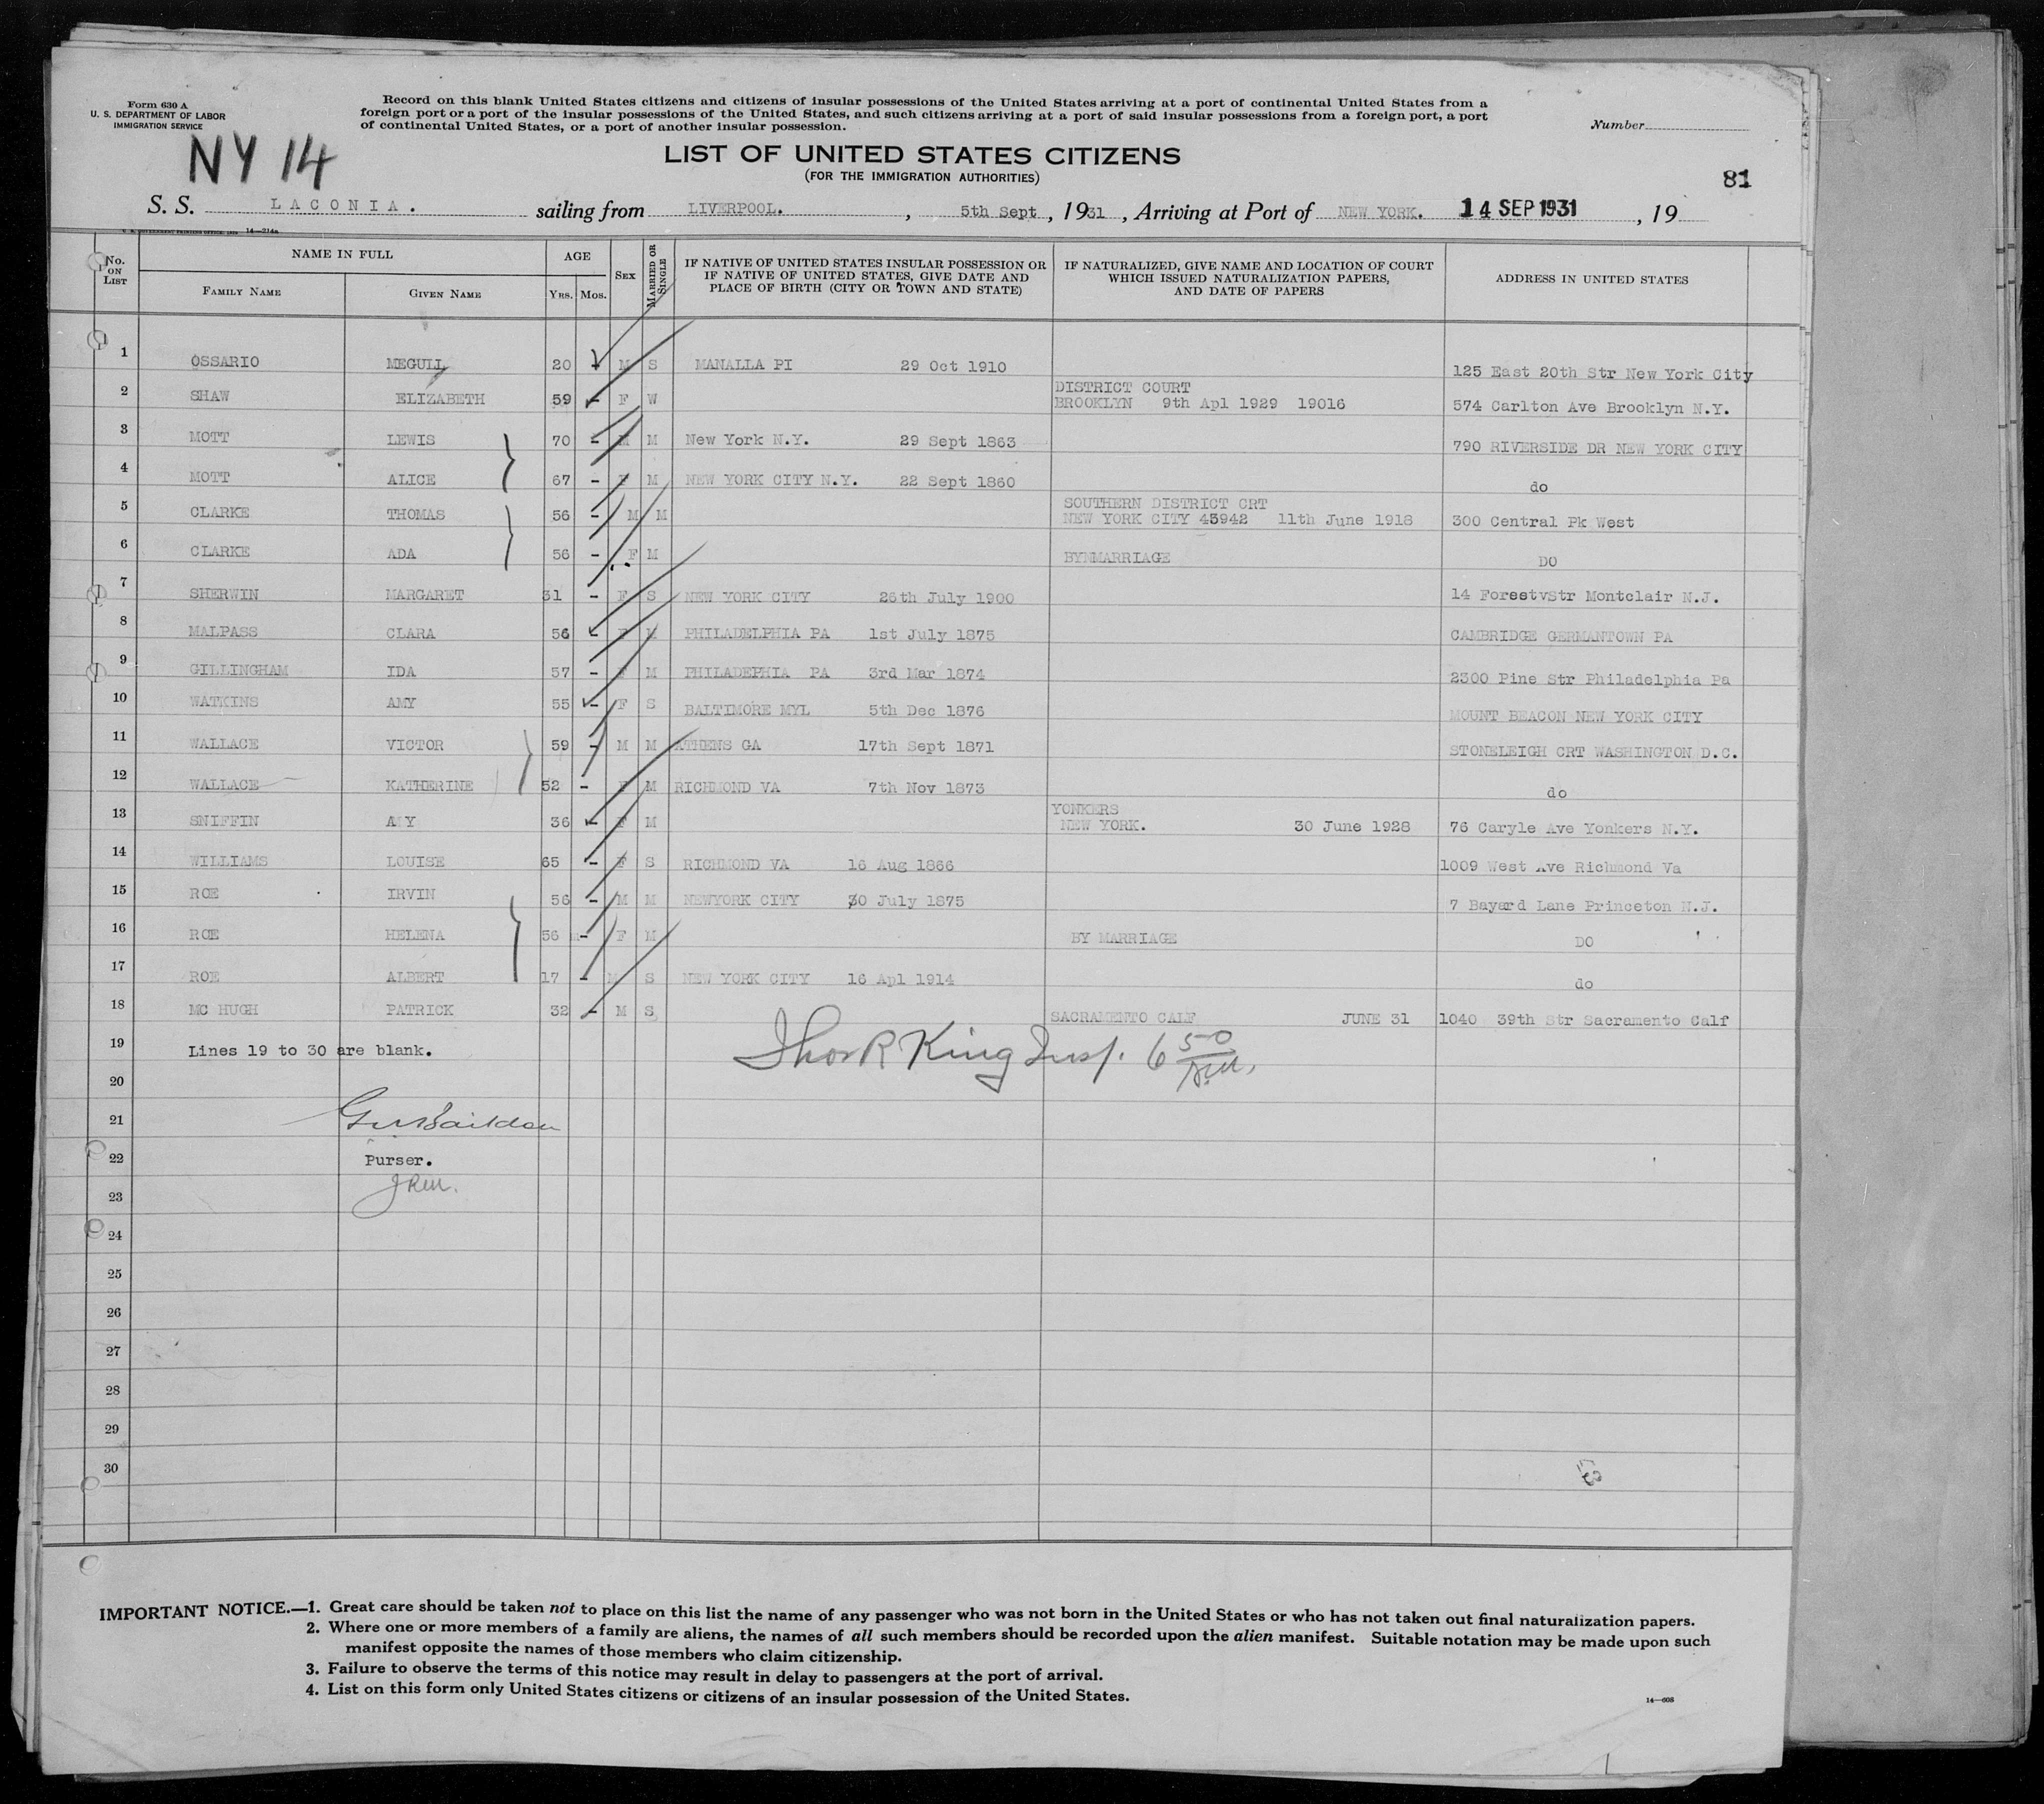 Form 630 A
U. S. DEPARTMENT OF LABOR
IMMIGRATION SERVICE
Record on this blank United States citizens and citizens of insular possessions of the United States arriving at a port of continental United States from a
foreign port or a port of the insular possessions of the United States, and such citizens arriving at a port of said insular possessions from a foreign port, a port
of continental United States, or a port of another insular possession.
Number
NY 14
LIST OF UNITED STATES CITIZENS
(FOR THE IMMIGRATION AUTHORITIES)
81
S. S. LACONIA. sailing from LIVERPOOL. , 5th Sept , 1931 , Arriving at Port of NEW YORK. 14 SEP 1931 , 19
14—214a
No. ON LIST
NAME IN FULL
FAMILY NAME
GIVEN NAME
AGE
YRS.
MOS.
SEX
MARRIED OR SINGLE
IF NATIVE OF UNITED STATES INSULAR POSSESSION OR
IF NATIVE OF UNITED STATES, GIVE DATE AND
PLACE OF BIRTH (CITY OR TOWN AND STATE)
IF NATURALIZED, GIVE NAME AND LOCATION OF COURT
WHICH ISSUED NATURALIZATION PAPERS,
AND DATE OF PAPERS
ADDRESS IN UNITED STATES
1 OSSARIO MEGULL 20 M S MANALLA PI 29 Oct 1910 125 East 20th Str New York City
2 SHAW ELIZABETH 59 - F W DISTRICT COURT
BROOKLYN 9th Apl 1929 19016 574 Carlton Ave Brooklyn N.Y.
3 MOTT LEWIS 70 - M M New York N.Y. 29 Sept 1863 790 RIVERSIDE DR NEW YORK CITY
4 MOTT ALICE 67 - F M NEW YORK CITY N.Y. 22 Sept 1860 do
5 CLARKE THOMAS 56 - M M SOUTHERN DISTRICT CRT
NEW YORK CITY 43942 11th June 1918 300 Central Pk West
6 CLARKE ADA 56 - F M BYNMARRIAGE DO
7 SHERWIN MARGARET 31 - F S NEW YORK CITY 25th July 1900 14 ForestvStr Montclair N.J.
8 MALPASS CLARA 56 - F M PHILADELPHIA PA 1st July 1875 CAMBRIDGE GERMANTOWN PA
9 GILLINGHAM IDA 57 - F M PHILADEPHIA PA 3rd Mar 1874 2300 Pine Str Philadelphia Pa
10 WATKINS AMY 55 - F S BALTIMORE MYL 5th Dec 1876 MOUNT BEACON NEW YORK CITY
11 WALLACE VICTOR 59 - M M ATHENS GA 17th Sept 1871 STONELEIGH CRT WASHINGTON D.C.
12 WALLACE KATHERINE 52 - F M RICHMOND VA 7th Nov 1873 do
13 SNIFFIN AMY 36 - F M YONKERS
NEW YORK. 30 June 1928 76 Caryle Ave Yonkers N.Y.
14 WILLIAMS LOUISE 65 - F S RICHMOND VA 16 Aug 1866 1009 West Ave Richmond Va
15 ROE IRVIN 56 - M M NEWYORK CITY 30 July 1875 7 Bayard Lane Princeton N.J.
16 ROE HELENA 56 - F M BY MARRIAGE DO
17 ROE ALBERT 17 - M S NEW YORK CITY 16 Apl 1914 do
18 MC HUGH PATRICK 32 - M S SACRAMENTO CALF JUNE 31 1040 39th Str Sacramento Calf
19 Lines 19 to 30 are blank.
Thos R King Insp. 6 50
20
21
22 Purser.
JRM.
23
24
25
26
27
28
29
30
IMPORTANT NOTICE.—1. Great care should be taken not to place on this list the name of any passenger who was not born in the United States or who has not taken out final naturalization papers.
2. Where one or more members of a family are aliens, the names of all such members should be recorded upon the alien manifest. Suitable notation may be made upon such
manifest opposite the names of those members who claim citizenship.
3. Failure to observe the terms of this notice may result in delay to passengers at the port of arrival.
4. List on this form only United States citizens or citizens of an insular possession of the United States.
14—608